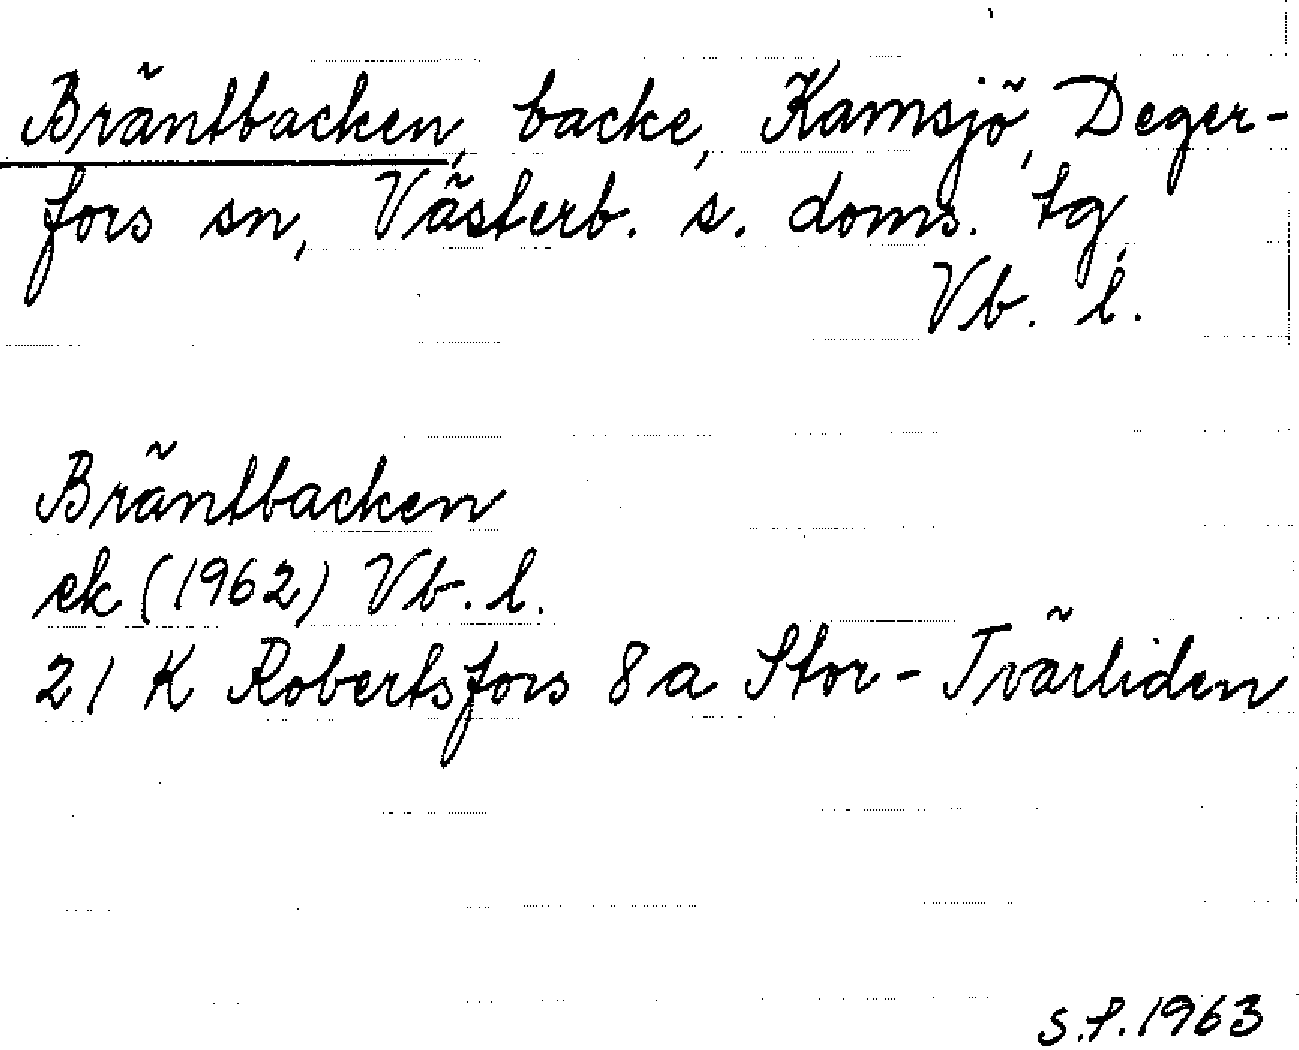 Bräntbacken, backe, Kamsjö, Deger-
fors sn, Västerb. s. doms. tg,
Vb. l.
Bräntbacken
ek (1962) Vb. l.
21 K Robertsfors 8 a Stor-Tvärliden
S.P. 1963